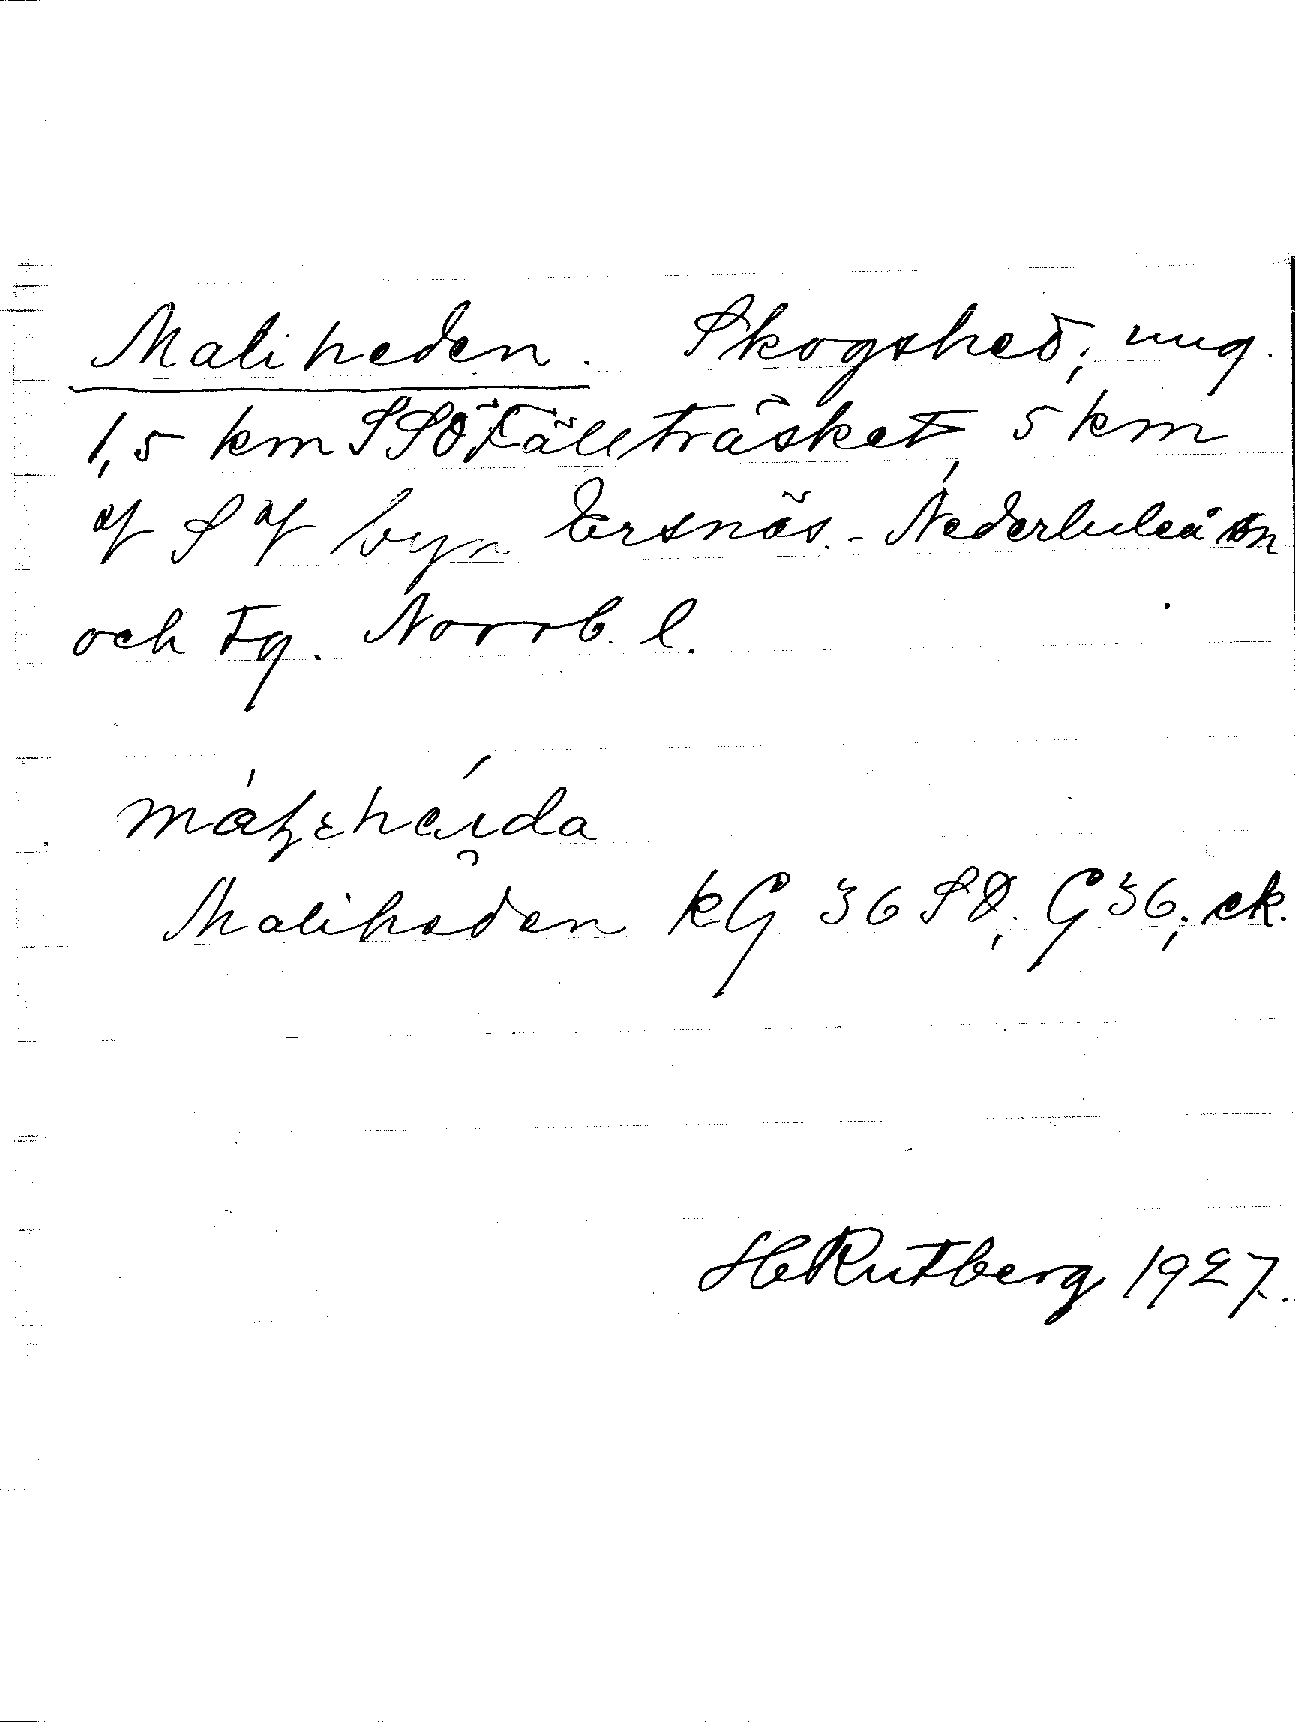 Maliheden. Skogshed, ung.
1,5 km SSÖ Fällträsket, 5 km
af S af byn Ersnäs. - Nederluleå sn
och tg. Norrb. l.
Maliheden kG 36 SÖ, G 36, ek.
H Rutberg 1927.